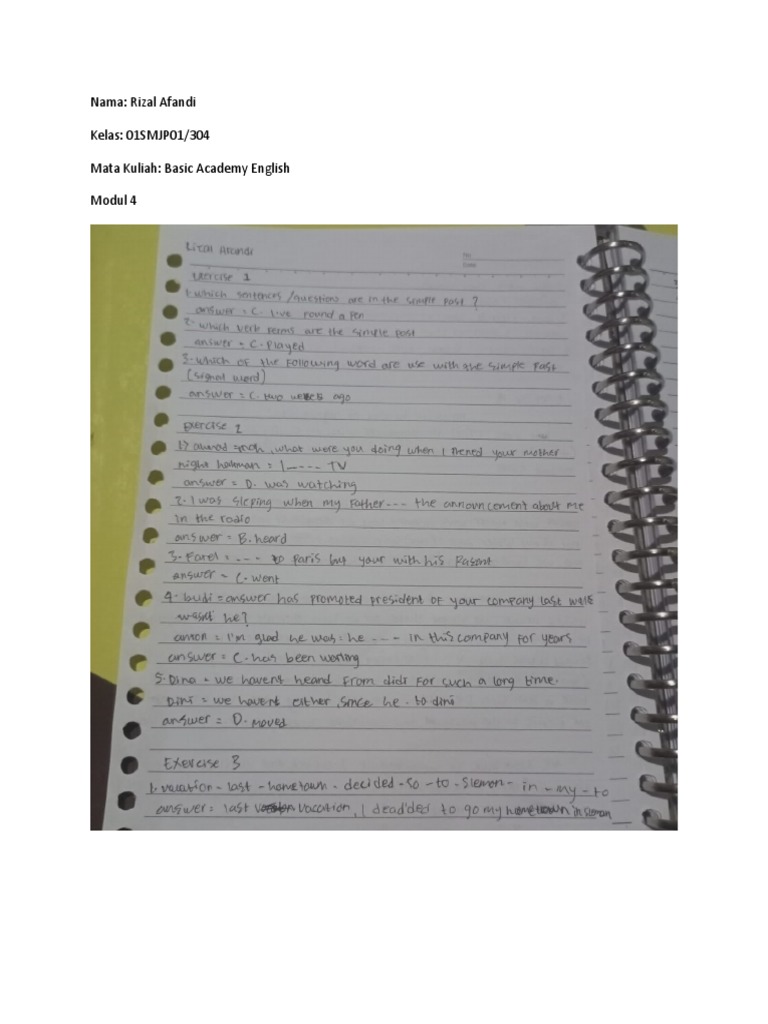 Nama: Rizal Afandi
Kelas: 01SMJP01/304
Mata Kuliah: Basic Academy English
Modul 4
Rizal Afandi
No.
Date
Exercise 1
1. which sentences /questions are in the simple past ?
answer = C. I've found a pen
2. which verb forms are the simple past
answer = C. Played
3. which of the following word are use with the simple past
(signal word)
answer = C. two weeks ago
Exercise 2
1) ahmad = , what were you doing when I your mother
night = I ----- TV
answer = D. was watching
2. I was sleping when my Father --- the announcement about me
in the radio
answer = B. heard
3. Farel = --- to Paris your with his
answer = C. went
4. = answer has promoted president of your company last
he?
= I'm glad he was = he --- in this company for years
answer = C. has been working
5. Dina = we havent heard from didi for such a long time.
Dini = we havent either, since he . to dini
answer = D. moved
Exercise 3
1. vacation - last - hometown - decided - go - to - Slemon - in - my - to
answer = last vacation, I deadded to go my hometown in sleman